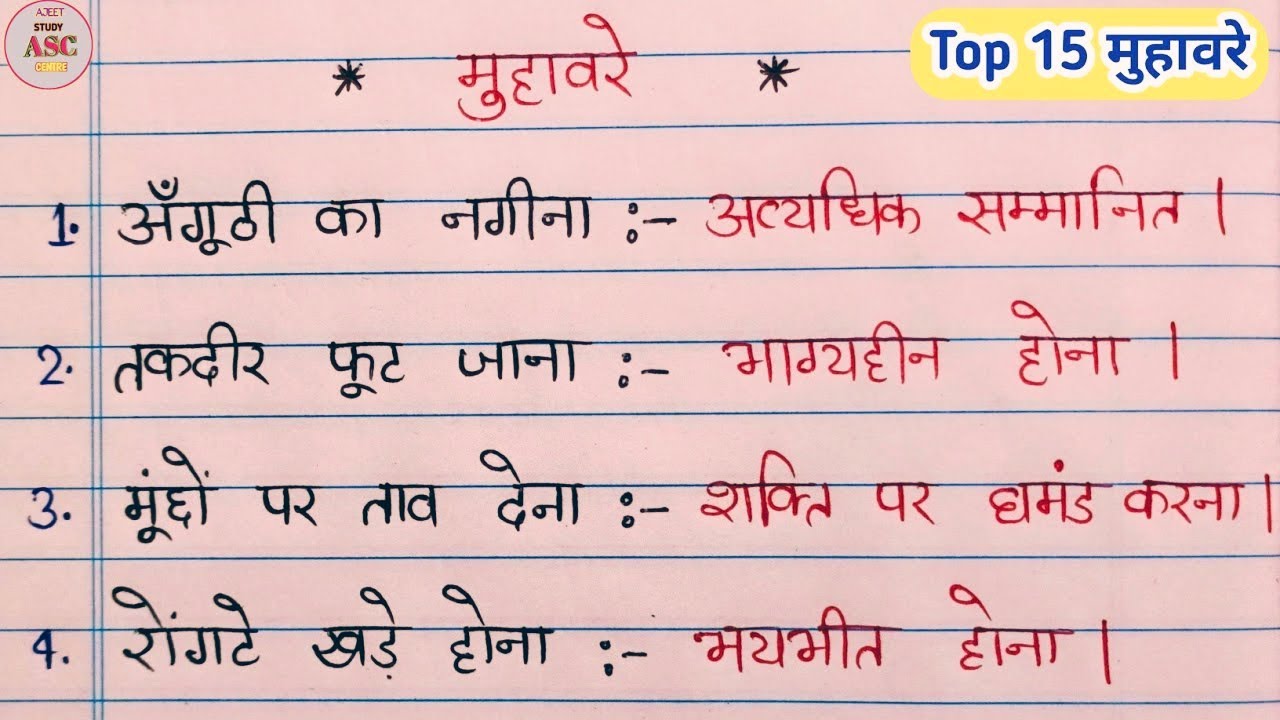 AJEET
STUDY
ASC
CENTRE
Top 15 मुहावरे
* मुहावरे *
1. अँगूठी का नगीना :- अत्यधिक सम्मानित।
2. तकदीर फूट जाना :- भाग्यहीन होना।
3. मूंछों पर ताव देना :- शक्ति पर घमंड करना।
4. रोंगटे खड़े होना :- भयभीत होना।